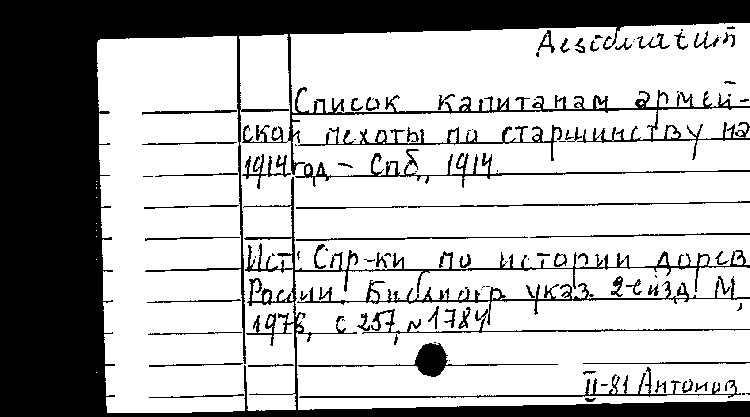 Desideratum
Список капитанам армей-
ской пехоты по старшинству на
1914 год. - Спб., 1914.
Ист.: Спр-ки по истории дорев
России. Библиогр указ. 2-е изд. М,
1978, с 257, № 1784
II-81 Антонов